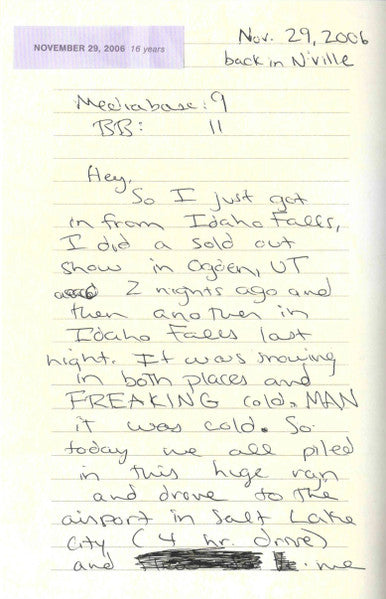 NOVEMBER 29, 2006 16 years
Nov. 29, 2006
back in N'ville
Mediabase: 9
BB: 11
Hey,
So I just got
in from Idaho Falls,
I did a sold out
show in Ogden, UT
2 nights ago and
then another in
Idaho Falls last
night. It was snowing
in both places and
FREAKING cold. MAN
it was cold. So
today we all piled
in this huge van
and drove to the
airport in Salt Lake
City (4 hr. drive)
and me